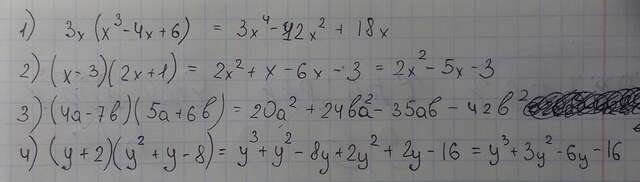 1) 3x (x³-4x+6) = 3x⁴-12x² + 18x
2) (x-3)(2x+1) = 2x²+x-6x-3 = 2x²-5x-3
3) (4a-7в)(5a+6в) = 20a²+24вa²-35aв-42в²
4) (y+2)(y²+y-8) = y³+y²-8y+2y²+2y-16 = y³+3y²-6y-16